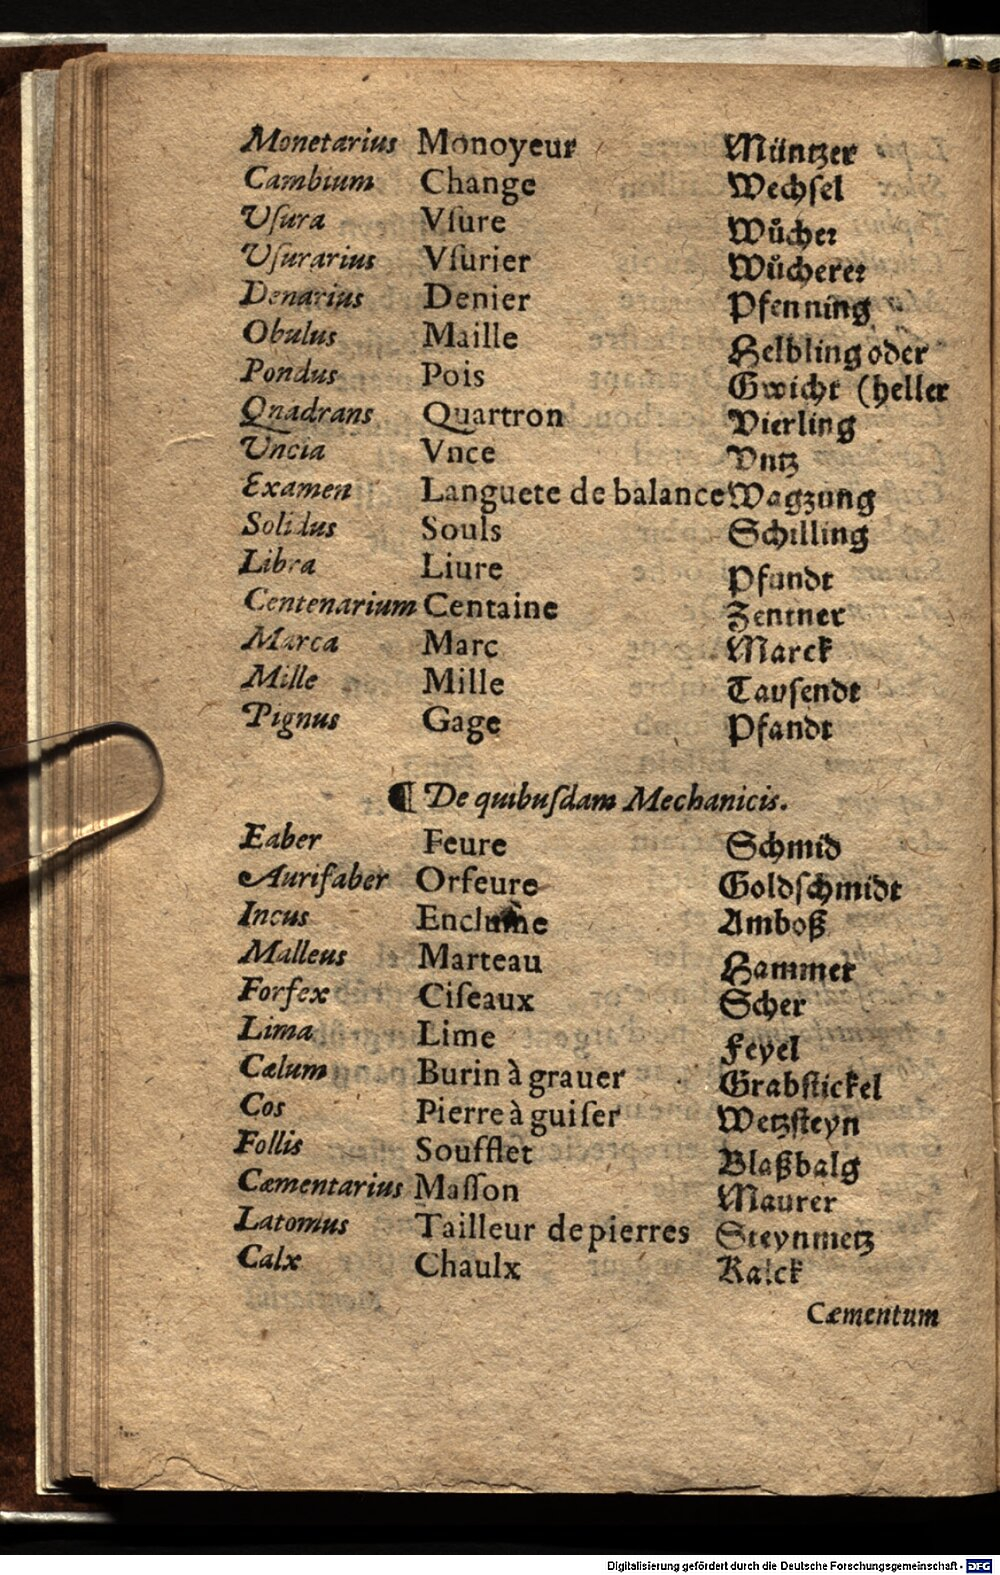 Monetarius Monoyeur Müntzer
Cambium Change Wechſel
Vſura Vſure Wůcher
Vſurarius Vſurier Wůcherer
Denarius Denier Pfenning
Obulus Maille Helbling oder
Pondus Pois Gwicht (heller
Quadrans Quartron Vierling
Vncia Vnce Vntz
Examen Languete de balance Wagzung
Solidus Souls Schilling
Libra Liure Pfundt
Centenarium Centaine Zentner
Marca Marc Marck
Mille Mille Tauſendt
Pignus Gage Pfandt
¶ De quibuſdam Mechanicis.
Eaber Feure Schmid
Aurifaber Orfeure Goldſchmidt
Incus Enclume Amboß
Malleus Marteau Hammer
Forfex Ciſeaux Scher
Lima Lime Feyel
Cælum Burin à grauer Grabſtickel
Cos Pierre à guiſer Wetzſteyn
Follis Soufflet Blaßbalg
Cæmentarius Maſſon Maurer
Latomus Tailleur de pierres Steynmetz
Calx Chaulx Kalck
Cæmentum
Digitalisierung gefördert durch die Deutsche Forschungsgemeinschaft - DFG